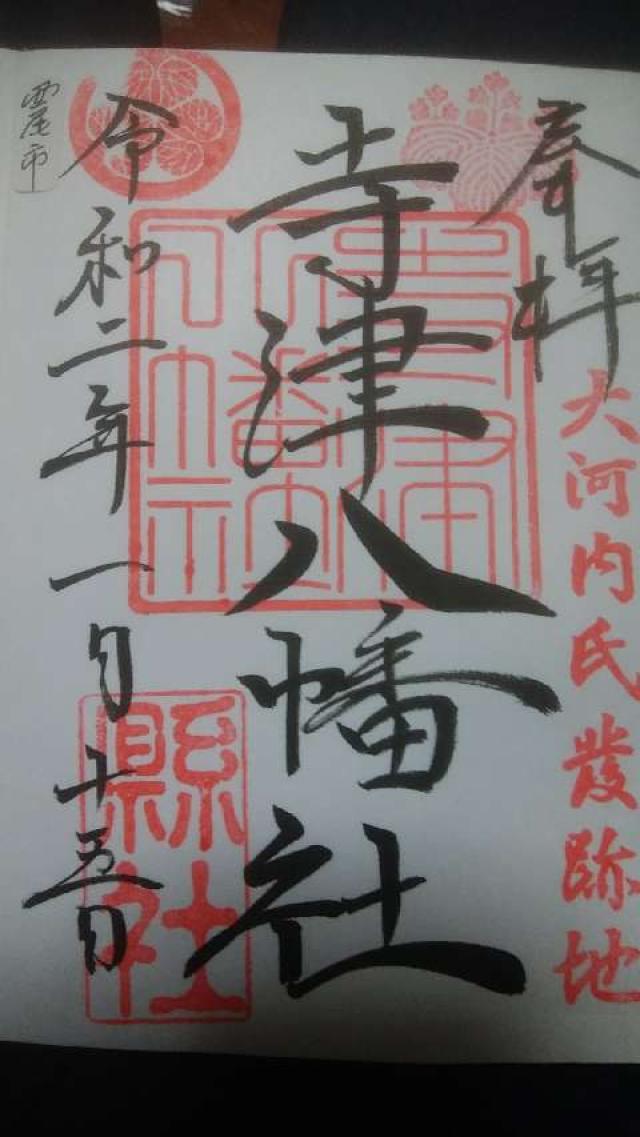 奉拝
大河内氏發跡地
寺津八幡社
寺津八幡社
縣社
令和二年一月十五日
西尾市